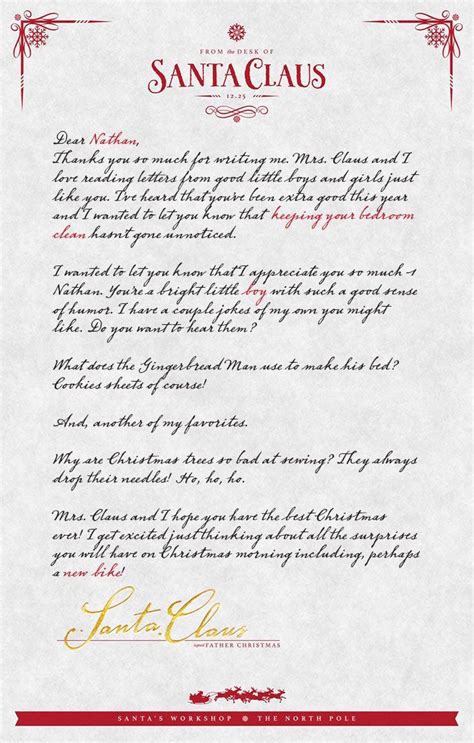 FROM the DESK OF
SANTA CLAUS
12.25
Dear Nathan,
Thanks you so much for writing me. Mrs. Claus and I
love reading letters from good little boys and girls just
like you. I've heard that you've been extra good this year
and I wanted to let you know that keeping your bedroom
clean hasnt gone unnoticed.
I wanted to let you know that I appreciate you so much -1
Nathan. You're a bright little boy with such a good sense
of humor. I have a couple jokes of my own you might
like. Do you want to hear them?
What does the Gingerbread Man use to make his bed?
Cookies sheets of course!
And, another of my favorites.
Why are Christmas trees so bad at sewing? They always
drop their needles! Ho, ho, ho.
Mrs. Claus and I hope you have the best Christmas
ever! I get excited just thinking about all the surprises
you will have on Christmas morning including, perhaps
a new bike!
Santa Claus
signed FATHER CHRISTMAS
SANTA'S WORKSHOP THE NORTH POLE